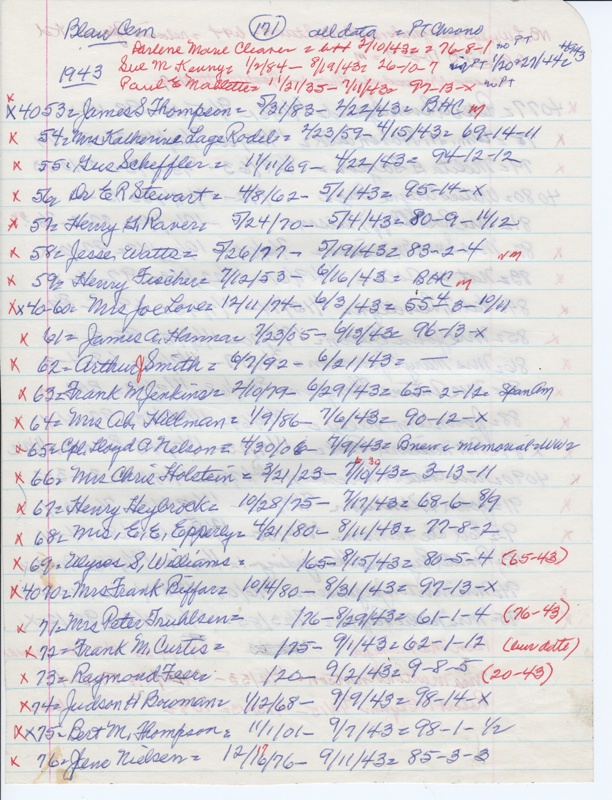 Blair Cem (171) all data = Pt Chrono
Darlene Marie Cleaver = b++ 2/10/43 = 76-8-1 no PT
1943 Sue M. Kenny = 1/2/84 - 8/19/43 = 26-10-7 no PT 1/20=27/44=
Paul E Mallette = 11/21/35 - 7/11/43 = 97-13-x no PT
x x4053 = James S Thompson = 5/31/83 - 2/22/43 = BHC m
x 54 = Mrs Katherine Lage Rodel = 2/23/59 - 4/15/43 = 69-14-11
x 55 = Gus Scheffler = 11/11/69 - 4/22/43 = 94-12-12
x 56 = Dr E R Stewart = 4/8/62 - 5/1/43 = 95-14-x
x 57 = Henry G. Raver = 5/24/70 - 5/4/43 = 80-9-11/12
x 58 = Jesse Watts = 5/26/77 - 5/19/43 = 83-2-4 nm
x 59 = Henry Fischer = 7/12/53 - 6/16/43 = BHC m
xx 40-60 = Mrs Joe Love = 12/11/74 - 6/3/43 = 554-3-10/11
x 61 = James A. Hanna = 7/23/65 - 6/13/43 = 96-13-x
x 62 = Arthur J Smith = 6/7/92 - 6/21/43 = —
x 63 = Frank M Jenkins = 2/10/79 - 6/29/43 = 65-2-12 = Span Am
x 64 = Mrs Ab. Hillman = 1/9/86 - 7/6/43 = 90-12-x
x 65 = Cpl. Lloyd A Nelson = 4/30/06 - 7/9/43 = memorial = WW2
x 66 = Mrs Chris Holstein = 3/21/23 - 7/10/43 = 3-13-11
x 67 = Henry Heybrock = 10/28/75 - 7/17/43 = 68-6-8/9
x 68 = Mrs. E. E. Epperly = 4/21/80 - 8/11/43 = 77-8-2
x 69 = Ulyses S. Williams = /65 - 8/15/43 = 80-5-4 (65-43)
x 4070 = Mrs Frank Biffar = 10/4/80 - 8/31/43 = 97-13-x
x 71 = Mrs Peter Truhlsen = /76 - 8/29/43 = 61-1-4 (76-43)
x 72 = Frank M. Curtis = /75 - 9/1/43 = 62-1-12 (our date)
x 73 = Raymond = /20 - 9/2/43 = 9-8-5 (20-43)
x 74 = Judson H Bowman = 1/12/68 - 9/9/43 = 98-14-x
x x 75 = Bert M. Thompson = 11/1/01 - 9/7/43 = 98-1-1/2
x 76 = Jens Nielsen = 12/16/76 - 9/11/43 = 85-3-3